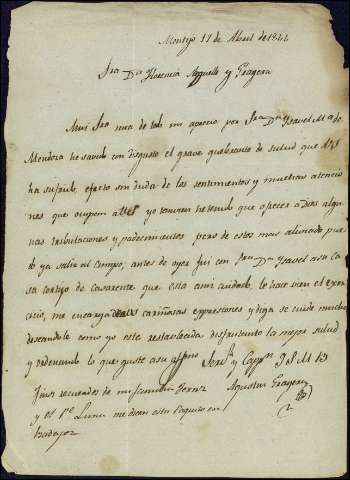 Montijo 17 de Abril de 1844
Sra Dña Florencia Arguello y Gragera
Mui Sra mia de todo mi aprecio por Sra Dña Ysavel Ma de
Mendoza he savido con disgusto el grave quebranto de salud que
ha sufrido, efecto sin duda de los sentimientos y muchas atencio
nes que ocupen a yo tamvien he tenido que ofrecer a Dios algu
nas tribulaciones y padecimientos pero de estos mas aliviado pue
do ya salir al campo, antes de ayer fui con Sra Dña Ysavel a su ca
sa cortijo de que esta a mi cuidado, lo hace vien el exer
cicio, me encarga cariñosas expresiones y diga se cuide mucho
deseandole como yo este restablecida disfrutando la mejor salud
y ordenando lo que guste a su affmo y Q S M B
recuerdos de mi familia Agustin Gragera
y el me dicen esta en
Badajoz